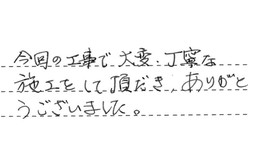 今回の工事で大変、丁寧な
施工をして頂だき、ありがと
うございました。